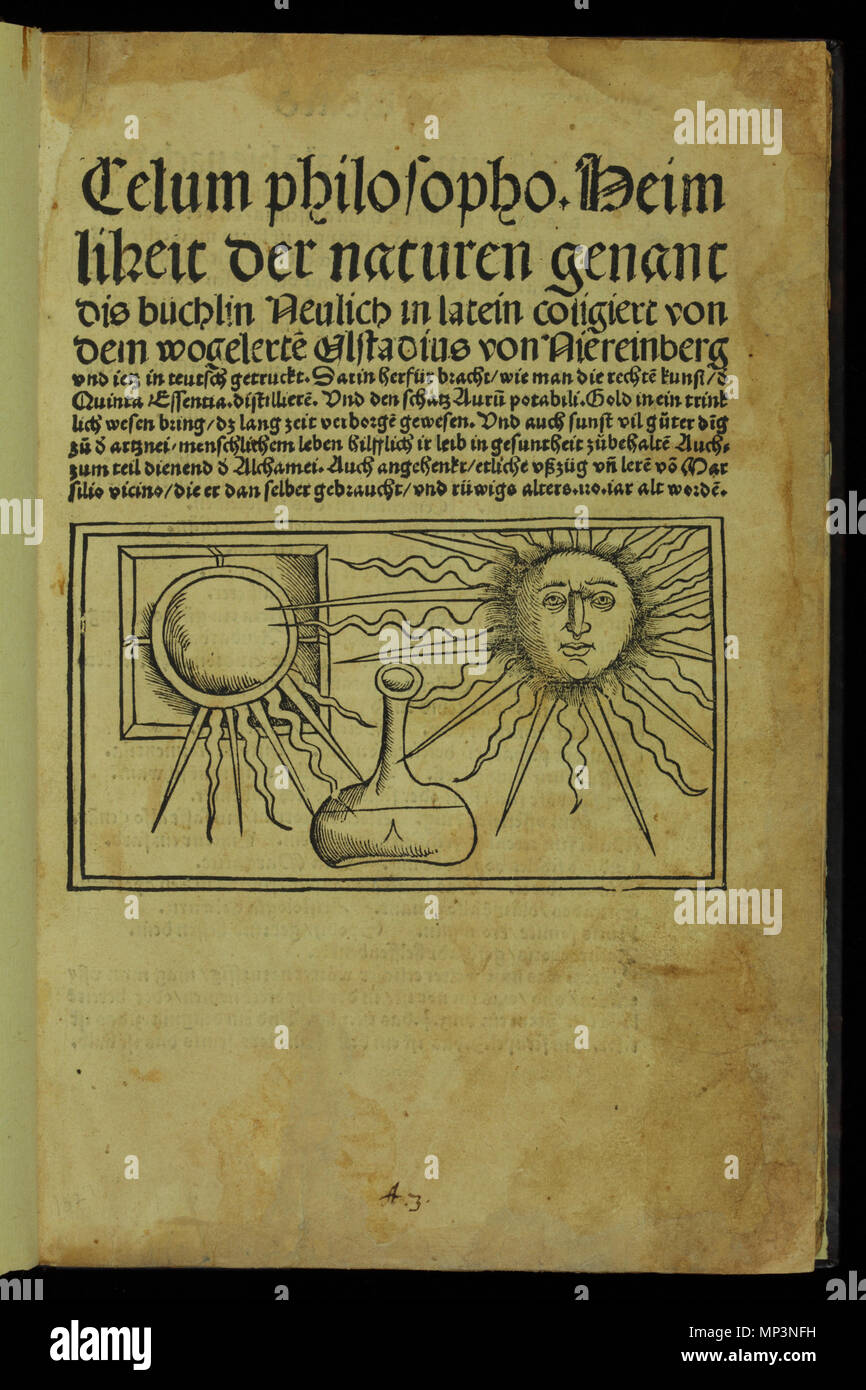 Celum philosopho. Heim
likeit der naturen genant
dis buchlin Neulich in latein coligiert von
dem wogelertē Ulstadius von Niereinberg
vnd ietz in teutsch getruckt. Darin herfür bracht/wie man die rechtē kunst/d̄
Quinta Essentia.distillierē. Vnd den schatz Aurū potabili.Gold in ein trink
lich wesen bring/dz lang zeit verborgē gewesen. Vnd auch sunst vil gůter dīg
zů d̄ artznei/menschlichem leben hilfflich ir leib in gesuntheit zůbehaltē Auch
zum teil dienend d̄ Alchamei. Auch angehenkt/etliche vßzüg vñ lerē vō Mar
silio vicino/die er dan selber gebraucht/vnd rüwigs alters.110.iar alt wordē.
A.3.
alamy stock photo
alamy
Image ID: MP3NFH
www.alamy.com